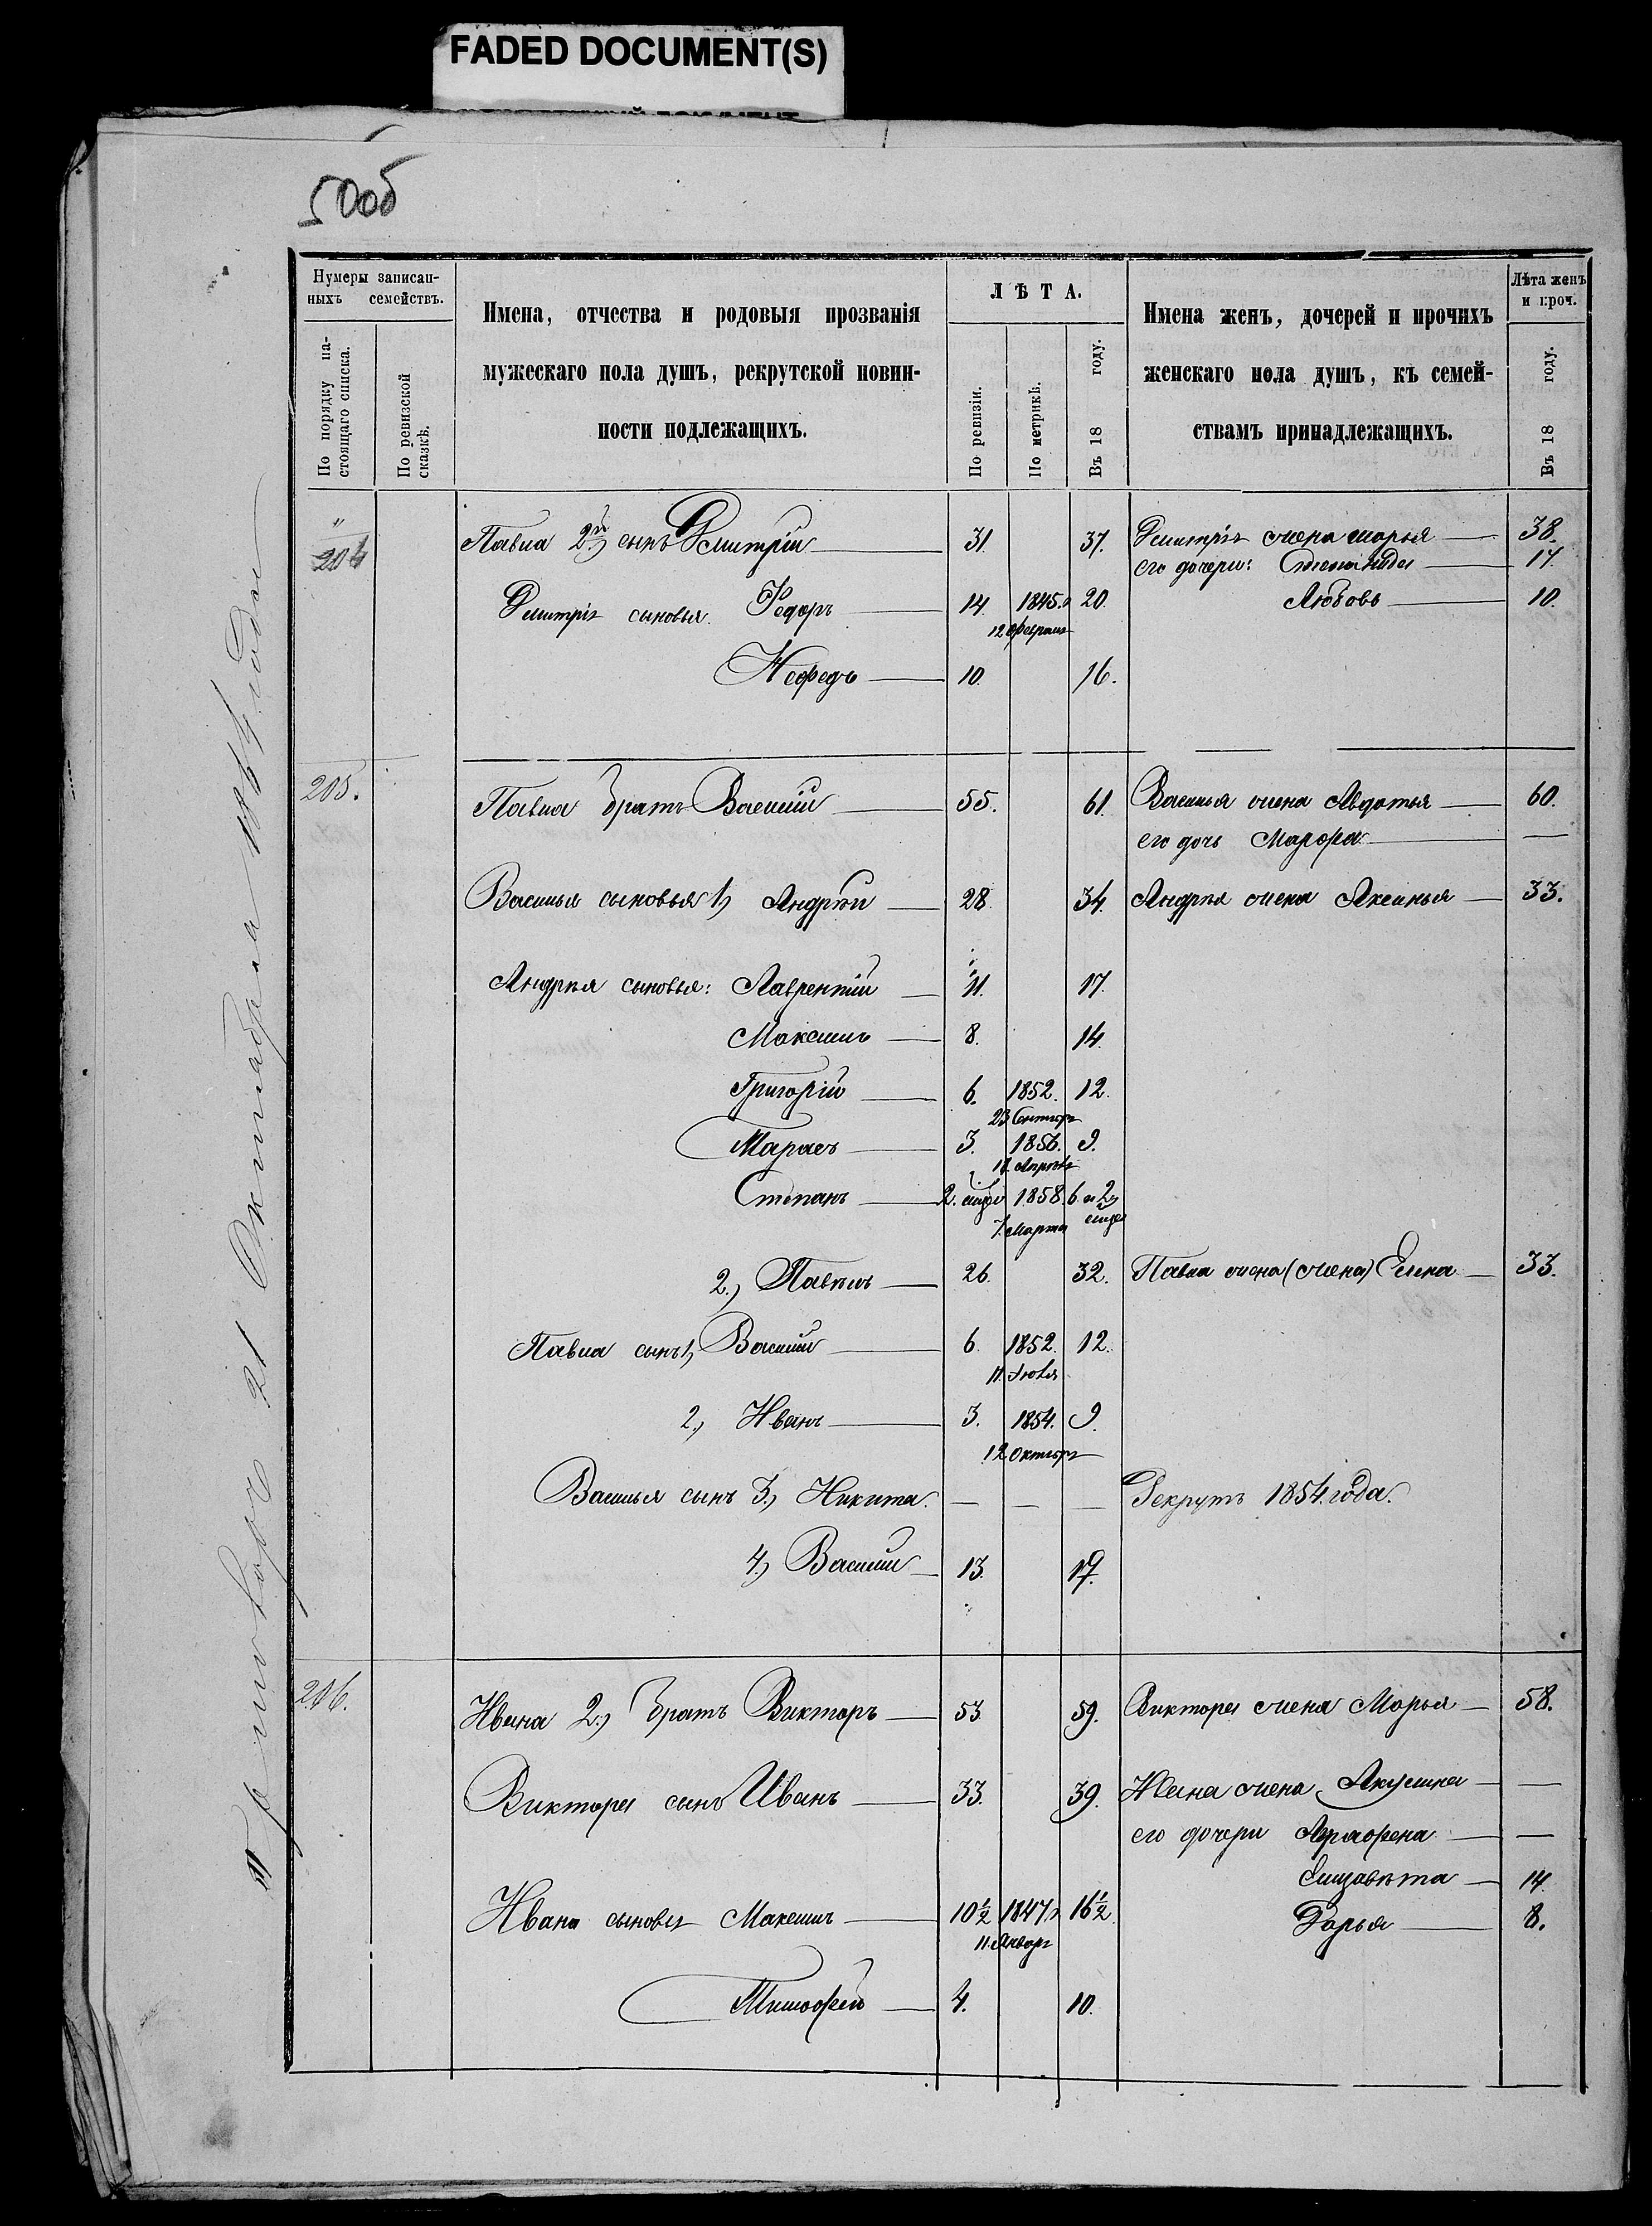 FADED DOCUMENT(S)
50об
Нумеры записан-
ныхъ семействъ.
По порядку на-
стоящаго списка.
По ревизской
сказкѣ.
Имена, отчества и родовыя прозванія
мужескаго пола душъ, рекрутской повин-
ности подлежащихъ.
ЛѢТА.
По ревизіи.
По метрикѣ.
Въ 18 году.
Имена женъ, дочерей и прочихъ
женскаго пола душъ, къ семей-
ствамъ принадлежащихъ.
Лѣта женъ
и проч.
Въ 18 году.
"
204 Павла 2й) сынъ Дмитрій 31. 37. Дмитрія жена Марья 38.
его дочери: 17.
Дмитрія сыновья Федоръ 14 1845. 20. Любовь 10.
12 Февраля
Нефедъ 10. 16.
205. Павла братъ Василій 55. 61. Василья жена Авдотья 60.
его дочь Марфа —
Василья сыновья 1) Андрѣй 28. 34. Андрѣя жена Аксинья 33.
Андрѣя сыновья: Лаврентій 11. 17.
Максимъ 8. 14.
Григорій 6. 1852. 12.
23 Сентября
Тарасъ 3. 1856. 9.
18. Апрѣля
Степанъ 2. 1858. 6 и 2
7. Марта
2.) Павелъ 26. 32. Павла жена (жена) Елена 33.
Павла сынъ 1) Василій 6. 1852. 12.
11. Іюля
2.) Иванъ 3. 1854. 9.
12 Октября
Василья сынъ 3.) Никита. — — — Рекрутъ 1854. года.
4.) Василій 13. 19.
206. Ивана 2.) братъ Викторъ 53. 59. Виктора жена Марья 58.
Виктора сынъ Иванъ 33. 39. Ивана жена Акулина —
его дочери Аграфена —
Елизавѣта 14.
Ивана сыновья Максимъ 10½ 1847. 16½ Дарья 8.
11. Января
Тимофей 4. 10.
21 Октября 1864 года